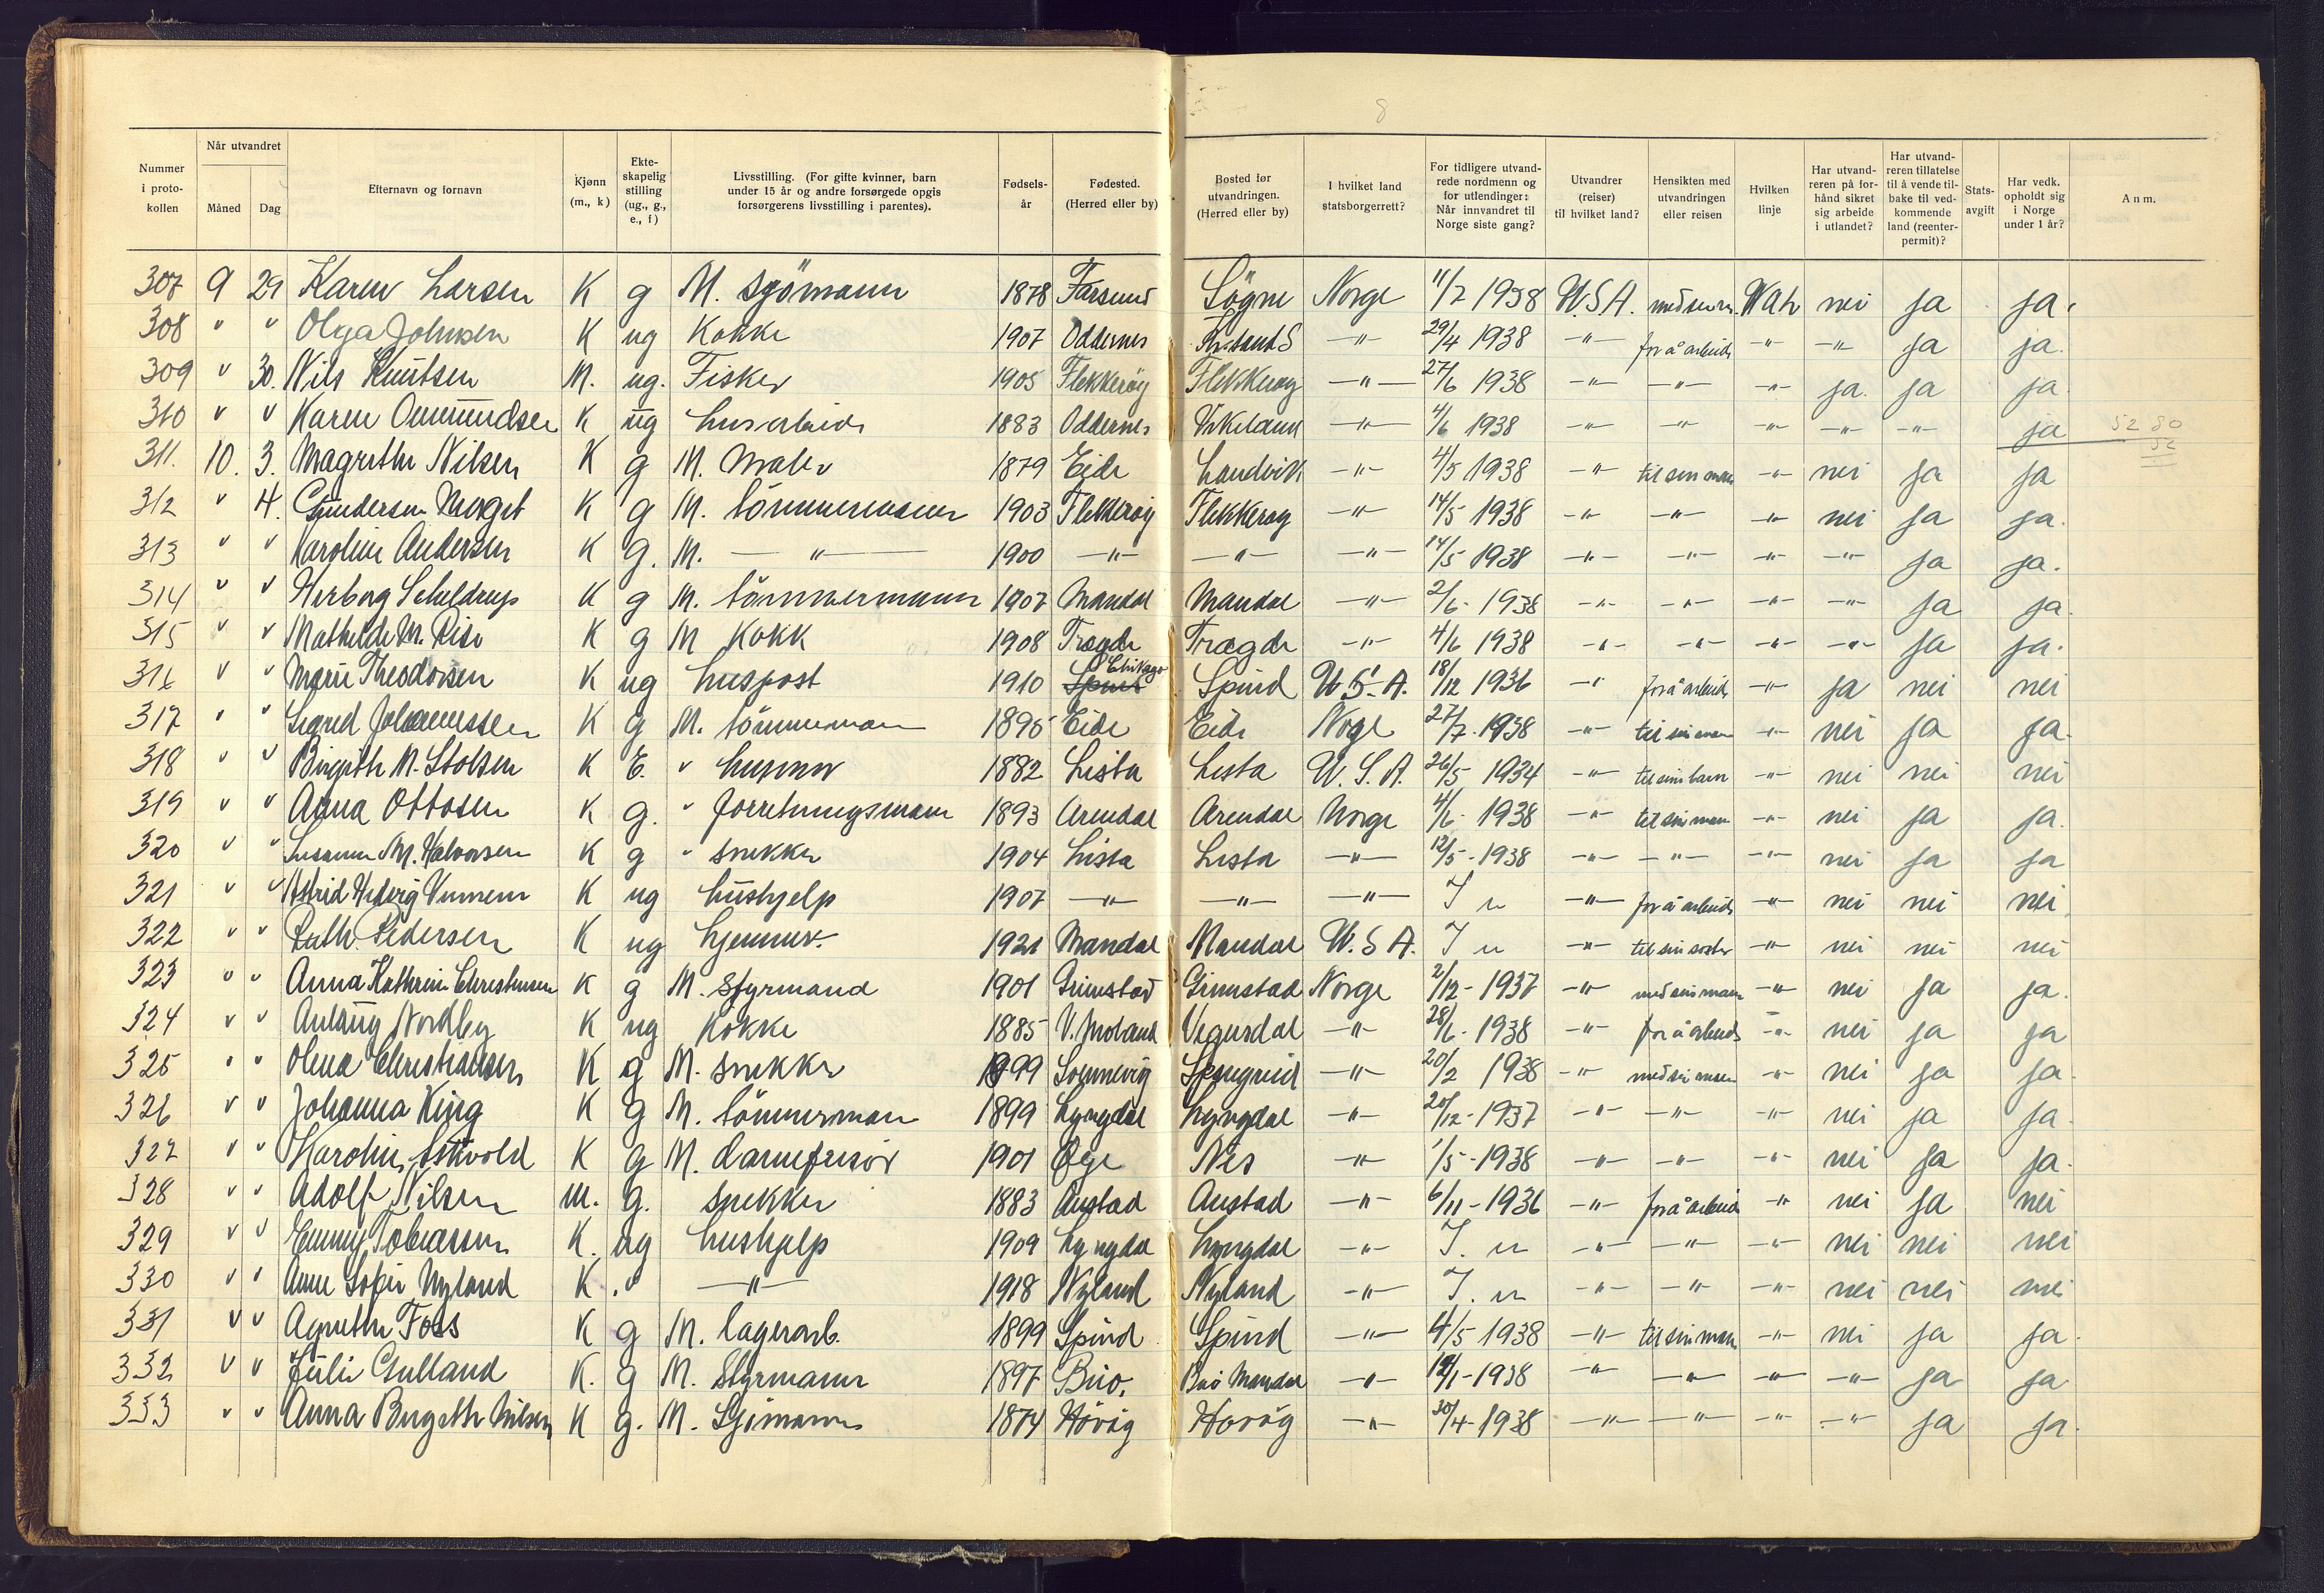 8
Nummer i proto-kollen | Når utvandret Måned | Dag | Efternavn og fornavn | Kjønn (m., k) | Ekte-skapelig stilling (ug., g., e., f) | Livsstilling. (For gifte kvinner, barn under 15 år og andre forsørgede opgis forsørgerens livsstilling i parentes). | Fødsels-år | Fødested. (Herred eller by) | Bosted før utvandringen. (Herred eller by) | I hvilket land statsborgerrett? | For tidligere utvand-rede nordmenn og for utlendinger: Når innvandret til Norge siste gang? | Utvandrer (reiser) til hvilket land? | Hensikten med utvandringen eller reisen | Hvilken linje | Har utvand-reren på for-hånd sikret sig arbeide i utlandet? | Har utvand-reren tillatelse til å vende til-bake til ved-kommende land (reenter-permit)? | Stats-avgift | Har vedk. opholdt sig i Norge under 1 år? | Anm.
307 9 29 Karen Larsen K g M. sjömann 1878 Farsund Sögne Norge 11/2 1938 U.S.A. nei ja ja.
308 " " Olga Johnsen K ug Kokke 1907 Oddernes Kr.sand S -"- 29/4 1938 -"- for å arbeide -"- -"- ja ja.
309 " 30. Nils Knutsen M. ug. Fisker 1905 Flekkerøy Flekkerøy -"- 27/6 1938 -"- -"- -"- ja. ja ja
310 " " Karen Omundsen K ug husarbeide 1883 Oddernes -"- 4/6 1938 -"- -"- -"- -"- -"- ja 52 80
52
311. 10. 3. Magrethe Nilsen K g M. maler 1879 Eide Landvik -"- 4/5 1938 -"- til sin man -"- nei ja ja
312 " 4. Gundersen Margit K g M. tömmermann 1903 Flekkerøy Flekkerøy -"- 14/5 1938 -"- -"- -"- nei ja ja.
313 " " Karoline Andersen K g. M. -"- 1900 -"- -"- -"- 14/5 1938 -"- -"- -"- -"- ja ja.
314 " " Herborg Scheldrup K g M. tömmermann 1907 Mandal Mandal -"- 2/6 - 1938 -"- -"- -"- -"- ja ja.
315 " " Mathilde M. Risö K g M Kokk 1908 Tregde Tregde -"- 4/6 1938 -"- -"- -"- -"- ja ja.
316 " " Marie Theodorsen K ug huspost 1910 Chikago Spind Spind U.S.A. 18/12 1936 -"- for å arbeide -"- ja nei nei
317 " " Sigred Johannessen K g M. tömmerman 1895 Eide Eide Norge 27/7 - 1938 -"- til sin man -"- nei ja ja.
318 " " Birgithe M. Stolsen K E. " husmor 1882 Lista Lista U.S.A. 26/5 - 1934 -"- til sin barn -"- nei nei nei
319 " " Anna Ottosen K g. " forretningsmann 1893 Arendal Arendal Norge 4/6 - 1938 -"- til sin man -"- nei ja ja.
320 " " Susanne M. Halvorsen K g " snekker 1904 Lista Lista -"- 12/5 - 1938 -"- -"- -"- nei ja ja
321 " " Astrid Hedvig K ug hushjelp 1907 -"- -"- -"- I u -"- for å arbeide -"- nei nei nei
322 " " Ruth. Pedersen K ug hjemmev. 1921 Mandal Mandal U.S A. I u -"- til sin søster -"- nei nei nei
323 " " Anna Kathrine Christensen K g M. styrmand 1901 Grimstad Grimstad Norge 2/12 - 1937 -"- med sin mann -"- nei ja ja.
324 " " Antony Nordby K ug Kokke 1885 V. Moland Vegusdal -"- 28/6 - 1938 -"- for å arbeide -"- nei ja ja
325 " " Olena Christiansen K g M. snekker 1899 Spangreid -"- 20/2 1938 -"- med sin man -"- nei ja ja
326 " " Johanna King K g M. tömmerman 1899 Lyngdal Lyngdal -"- 20/12 - 1937 -"- -"- -"- nei ja ja.
327 " " Karoline K g M. damefrisör 1901 Øye Nes -"- 1/5 - 1938 -"- -"- -"- nei ja ja.
328 " " Adolf Nilsen m. g. snekker 1883 Austad Austad -"- 6/11 - 1936 -"- for å arbeide -"- nei ja nei
329 " " Emmy Tobiassen K. ug hushjelp 1909 Lyngdal Lyngdal -"- I. u -"- -"- -"- nei nei nei
330 " " Anne Sofie Nyland K . " -"- 1918 Nyland Nyland -"- I. u -"- -"- -"- nei nei nei
331 " " Agnethe Foss K g M. lagerarb. 1899 Spind Spind -"- 4/5 1938 -"- til sin man -"- nei ja ja.
332 " " Julie Gulland K. g M. Styrmann 1897 Mandal -"- 1938 -"- -"- -"- -"- ja ja
333 " " Anna Birgethe Nilsen K g. M. Sjömann 1874 Hövåg Hövåg -"- 30/4 - 1938 -"- -"- -"- -"- ja ja.